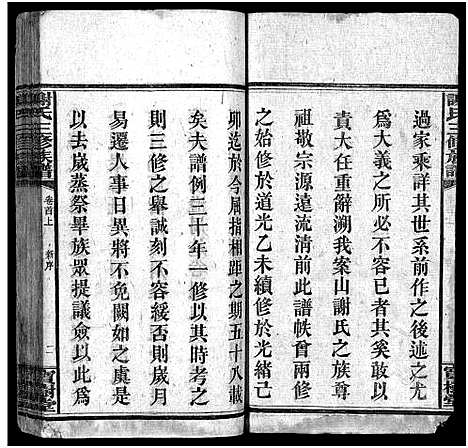 過家乘詳其世系前作之後述之尤
爲大義之所關余也何人敢以
責大任重辭溯我案山謝氏之族尊
祖敬宗源遠流清前此譜帙曾兩修
之始修於道光乙未續修於光緒己
卯迄於今屈指相距之期五十八載
矣夫譜例三十年一修以其時考之
則三修之舉誠刻不容綏否則歲月
易遷人事日異將不免闕如之虞是
以去歲蒸祭畢族眾提議僉以此爲
謝氏三修族譜
卷首上
新序
二
寶樹堂